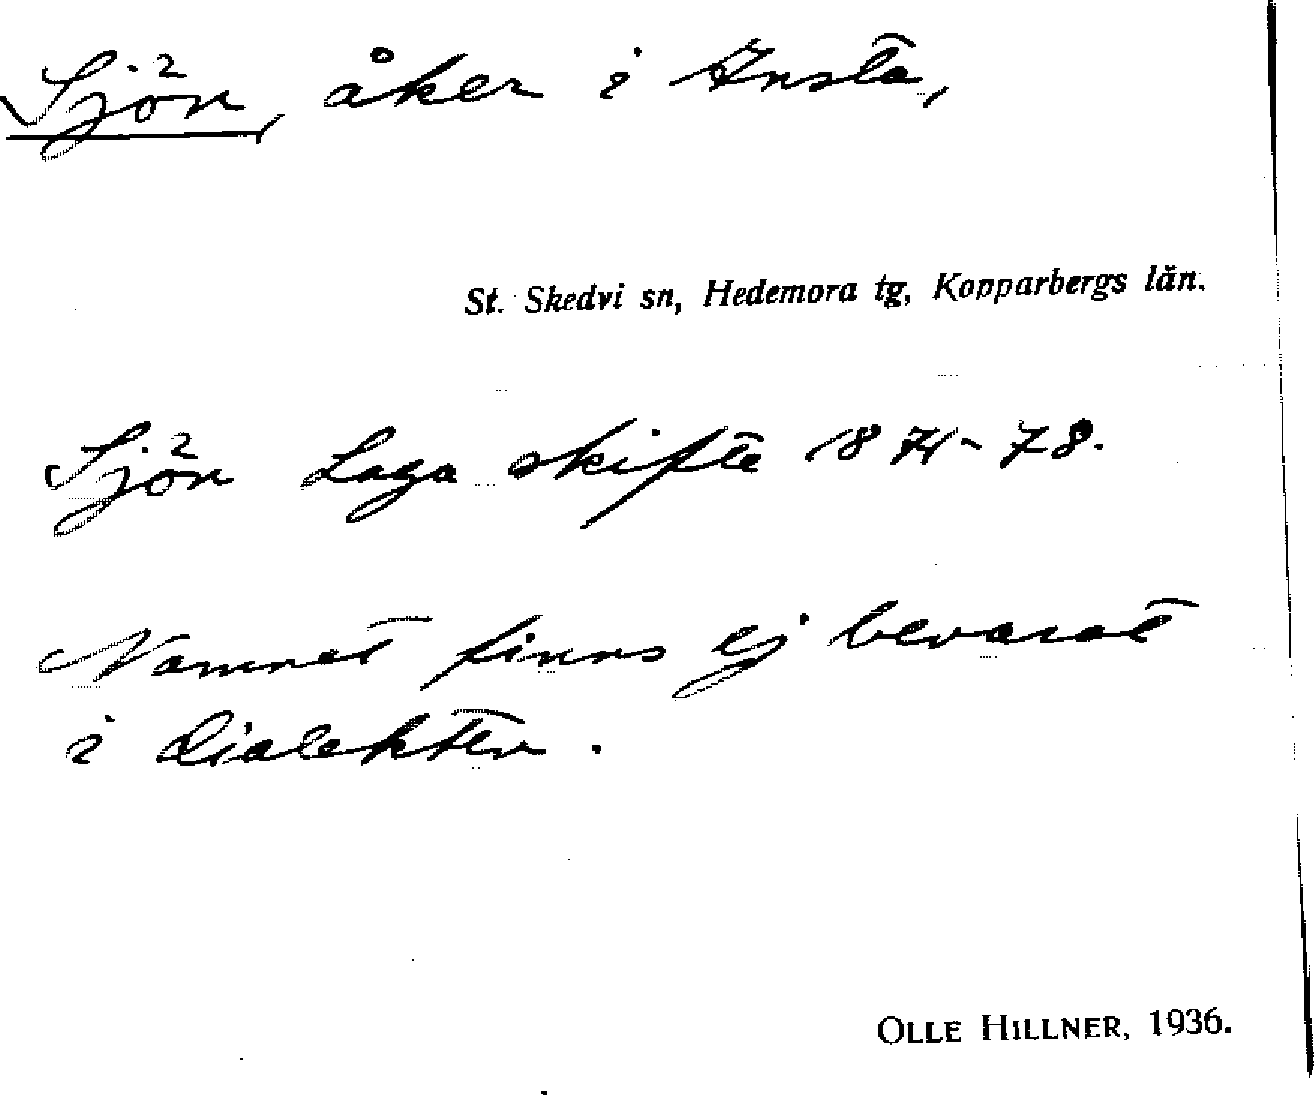 Sjön, åker i Inste,
St. Skedvi sn, Hedemora tg, Kopparbergs län.
Sjön Laga skifte 1874-78.
Namnet finns ej bevarat
i dialekten.
OLLE HILLNER, 1936.